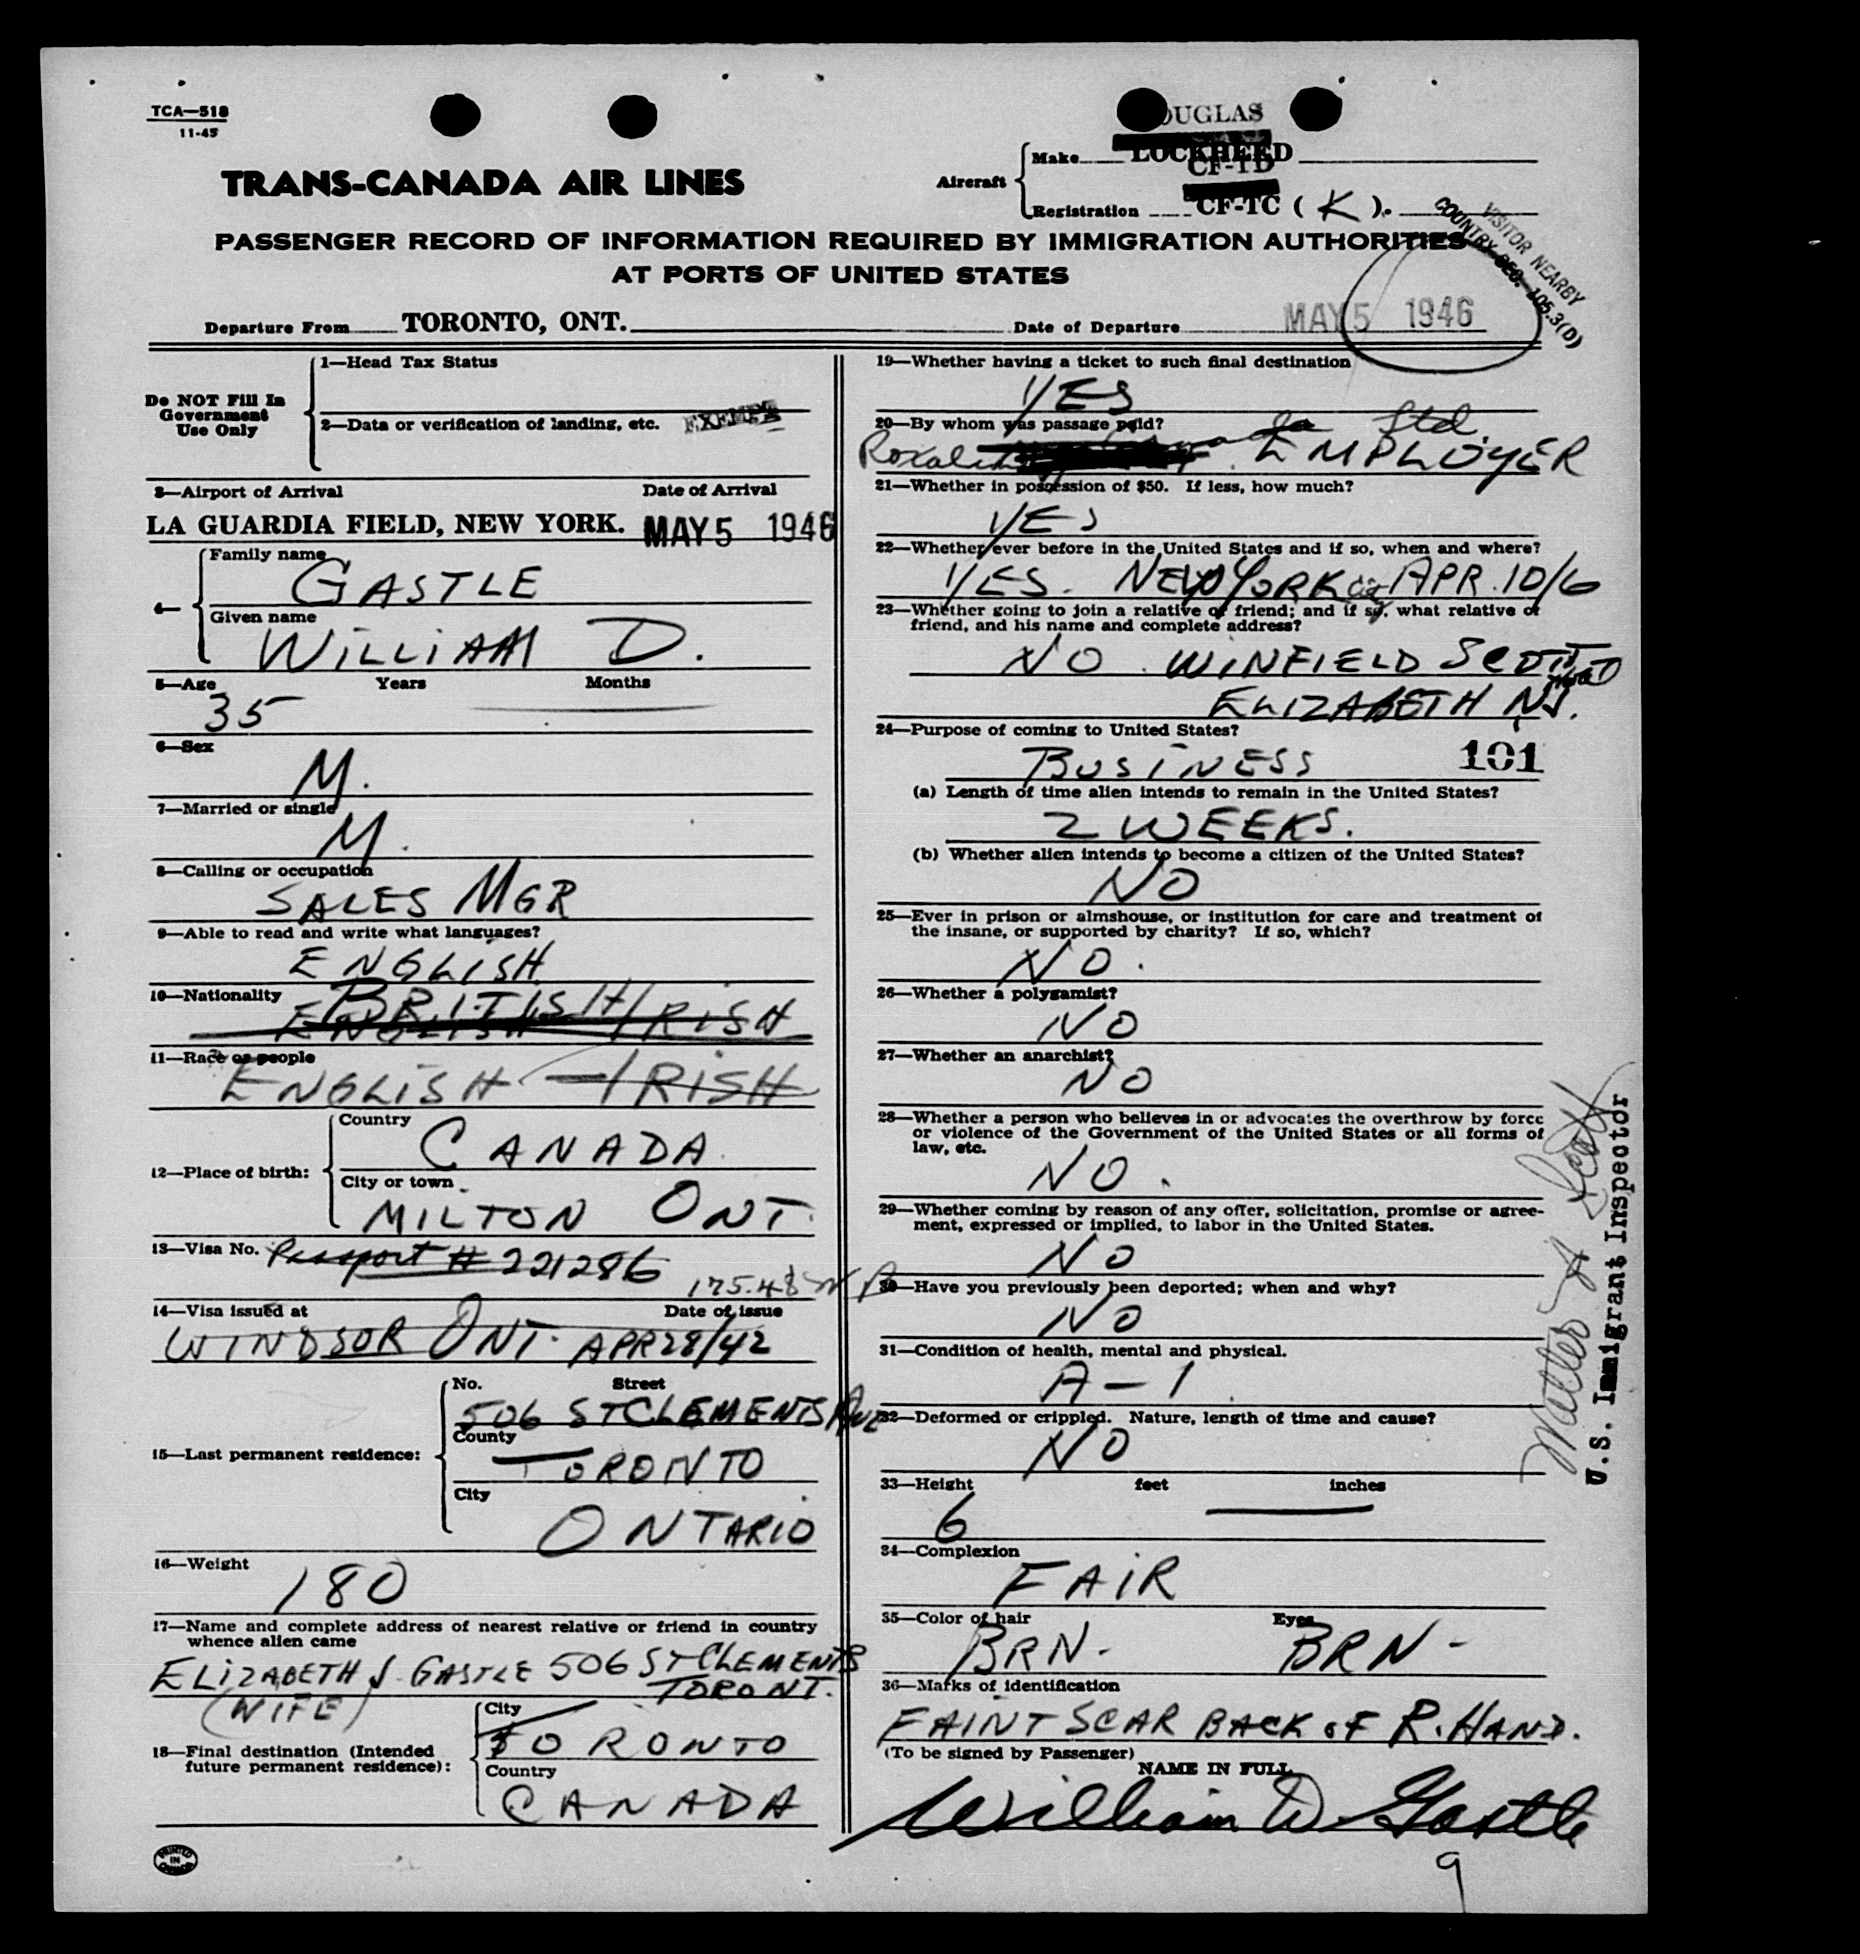 TCA—518
11-45
DOUGLAS
Make LOCKHEED
CF-TD
Aircraft
Registration CF-TC ( K ).
TRANS-CANADA AIR LINES
PASSENGER RECORD OF INFORMATION REQUIRED BY IMMIGRATION AUTHORITIES
AT PORTS OF UNITED STATES
VISITOR NEARBY
COUNTRY SEC. 105.3(D)
Departure From TORONTO, ONT. Date of Departure MAY 5 1946
Do NOT Fill In
Government
Use Only
1—Head Tax Status
2—Data or verification of landing, etc. EXEMPT
3—Airport of Arrival Date of Arrival
LA GUARDIA FIELD, NEW YORK. MAY 5 1946
4—
Family name
GASTLE
Given name
WILLIAM D.
5—Age Years Months
35
6—Sex
M.
7—Married or single
M.
8—Calling or occupation
SALES MGR
9—Able to read and write what languages?
ENGLISH
10—Nationality BRITISH
ENGLISH IRISH
11—Race or people
ENGLISH — IRISH
12—Place of birth:
Country
CANADA
City or town
MILTON ONT.
13—Visa No. Passport # 221286
175.48
14—Visa issued at Date of issue
WINDSOR ONT. APR 28/42
15—Last permanent residence:
No. Street
506 ST CLEMENTS AVE
County
TORONTO
City
ONTARIO
16—Weight
180
17—Name and complete address of nearest relative or friend in country
whence alien came
ELIZABETH J. GASTLE 506 ST CLEMENTS
TORONT.
(WIFE)
18—Final destination (Intended
future permanent residence):
City
TORONTO
Country
CANADA
PRINTED
IN
CANADA
19—Whether having a ticket to such final destination
YES
20—By whom was passage paid?
Ltd.
EMPLOYER
21—Whether in possession of $50. If less, how much?
YES
22—Whether ever before in the United States and if so, when and where?
YES. NEW YORK City APR. 10/6
23—Whether going to join a relative or friend; and if so, what relative or
friend, and his name and complete address?
NO. WINFIELD SCOTT
ELIZABETH NJ.
24—Purpose of coming to United States?
BUSINESS 101
(a) Length of time alien intends to remain in the United States?
2 WEEKS.
(b) Whether alien intends to become a citizen of the United States?
NO
25—Ever in prison or almshouse, or institution for care and treatment of
the insane, or supported by charity? If so, which?
NO.
26—Whether a polygamist?
NO
27—Whether an anarchist?
NO
28—Whether a person who believes in or advocates the overthrow by force
or violence of the Government of the United States or all forms of
law, etc.
NO.
29—Whether coming by reason of any offer, solicitation, promise or agree-
ment, expressed or implied, to labor in the United States.
NO
30—Have you previously been deported; when and why?
NO
31—Condition of health, mental and physical.
A-1
32—Deformed or crippled. Nature, length of time and cause?
NO
33—Height feet inches
6 —
34—Complexion
FAIR
35—Color of hair Eyes
BRN- BRN-
36—Marks of identification
FAINT SCAR BACK OF R. HAND.
(To be signed by Passenger)
NAME IN FULL
William D Gastle
9
U.S. Immigrant Inspector